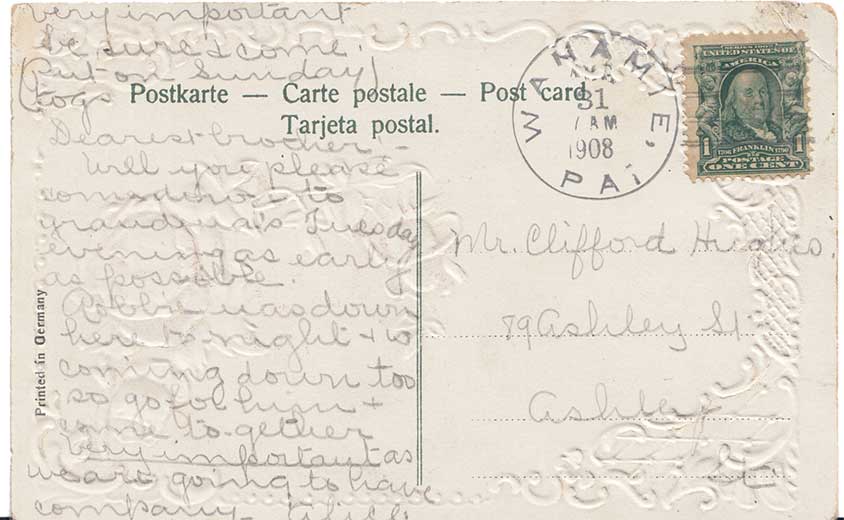 very important
be sure & come.
(Put on Sunday)
togs
Postkarte — Carte postale — Post card
Tarjeta postal.
Dearest brother:-
Will you please
come down to
grandma's Tuesday
evening as early
as possible.
Robbie was down
here to night + is
coming down too
so go for him +
come to-gether
very important as
we are going to have
company
Printed in Germany
WANAMIE, PA.
31
7 AM
1908
SERIES 1902
UNITED STATES OF
AMERICA
1706 FRANKLIN 1790
1 POSTAGE 1
ONE CENT
Mr. Clifford Hughes.
89 Ashley St
Ashley